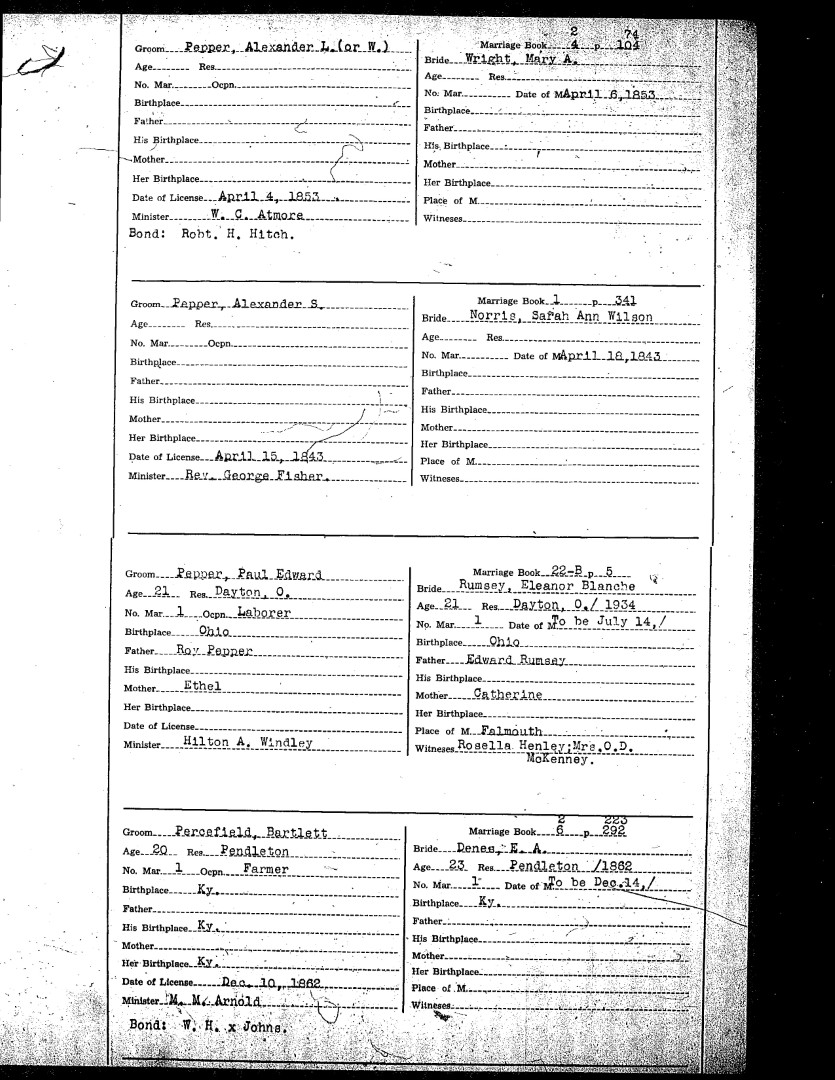 2 74
Groom Pepper, Alexander L.(or W.) Marriage Book 4 p 104
Age Res. Bride Wright, Mary A.
No. Mar. Ocpn. Age Res.
Birthplace No. Mar. Date of M April 6,1853
Father Birthplace
His Birthplace Father
Mother His Birthplace
Her Birthplace Mother
Date of License April 4, 1853 Her Birthplace
Minister W. C. Atmore Place of M.
Bond: Robt. H. Hitch. Witnesses
Groom Pepper, Alexander S. Marriage Book 1 p 341
Age Res. Bride Norris, Sarah Ann Wilson
No. Mar. Ocpn. Age Res.
Birthplace No. Mar. Date of M April 18,1843
Father Birthplace
His Birthplace Father
Mother His Birthplace
Her Birthplace Mother
Date of License April 15, 1843 Her Birthplace
Minister Rev. George Fisher. Place of M.
Witnesses
Groom Pepper, Paul Edward Marriage Book 22-B p 5
Age 21 Res. Dayton, O. Bride Rumsey, Eleanor Blanche
No. Mar. 1 Ocpn. Laborer Age 21 Res. Dayton, O./ 1934
Birthplace Ohio No. Mar. 1 Date of M To be July 14,/
Father Roy Pepper Birthplace Ohio
His Birthplace Father Edward Rumsey
Mother Ethel His Birthplace
Her Birthplace Mother Catherine
Date of License Her Birthplace
Minister Hilton A. Windley Place of M. Falmouth
Witnesses Rosella Henley;Mrs.O.D.
McKenney.
2 223
Groom Percefield, Bartlett Marriage Book 6 p 292
Age 20 Res. Pendleton Bride Denes, E. A.
No. Mar. 1 Ocpn. Farmer Age 23 Res. Pendleton /1862
Birthplace Ky. No. Mar. 1 Date of M To be Dec.14,/
Father Birthplace Ky.
His Birthplace Ky. Father
Mother His Birthplace
Her Birthplace Ky. Mother
Date of License Dec. 10, 1862 Her Birthplace
Minister M. M. Arnold Place of M.
Bond: W. H. x Johns. Witnesses